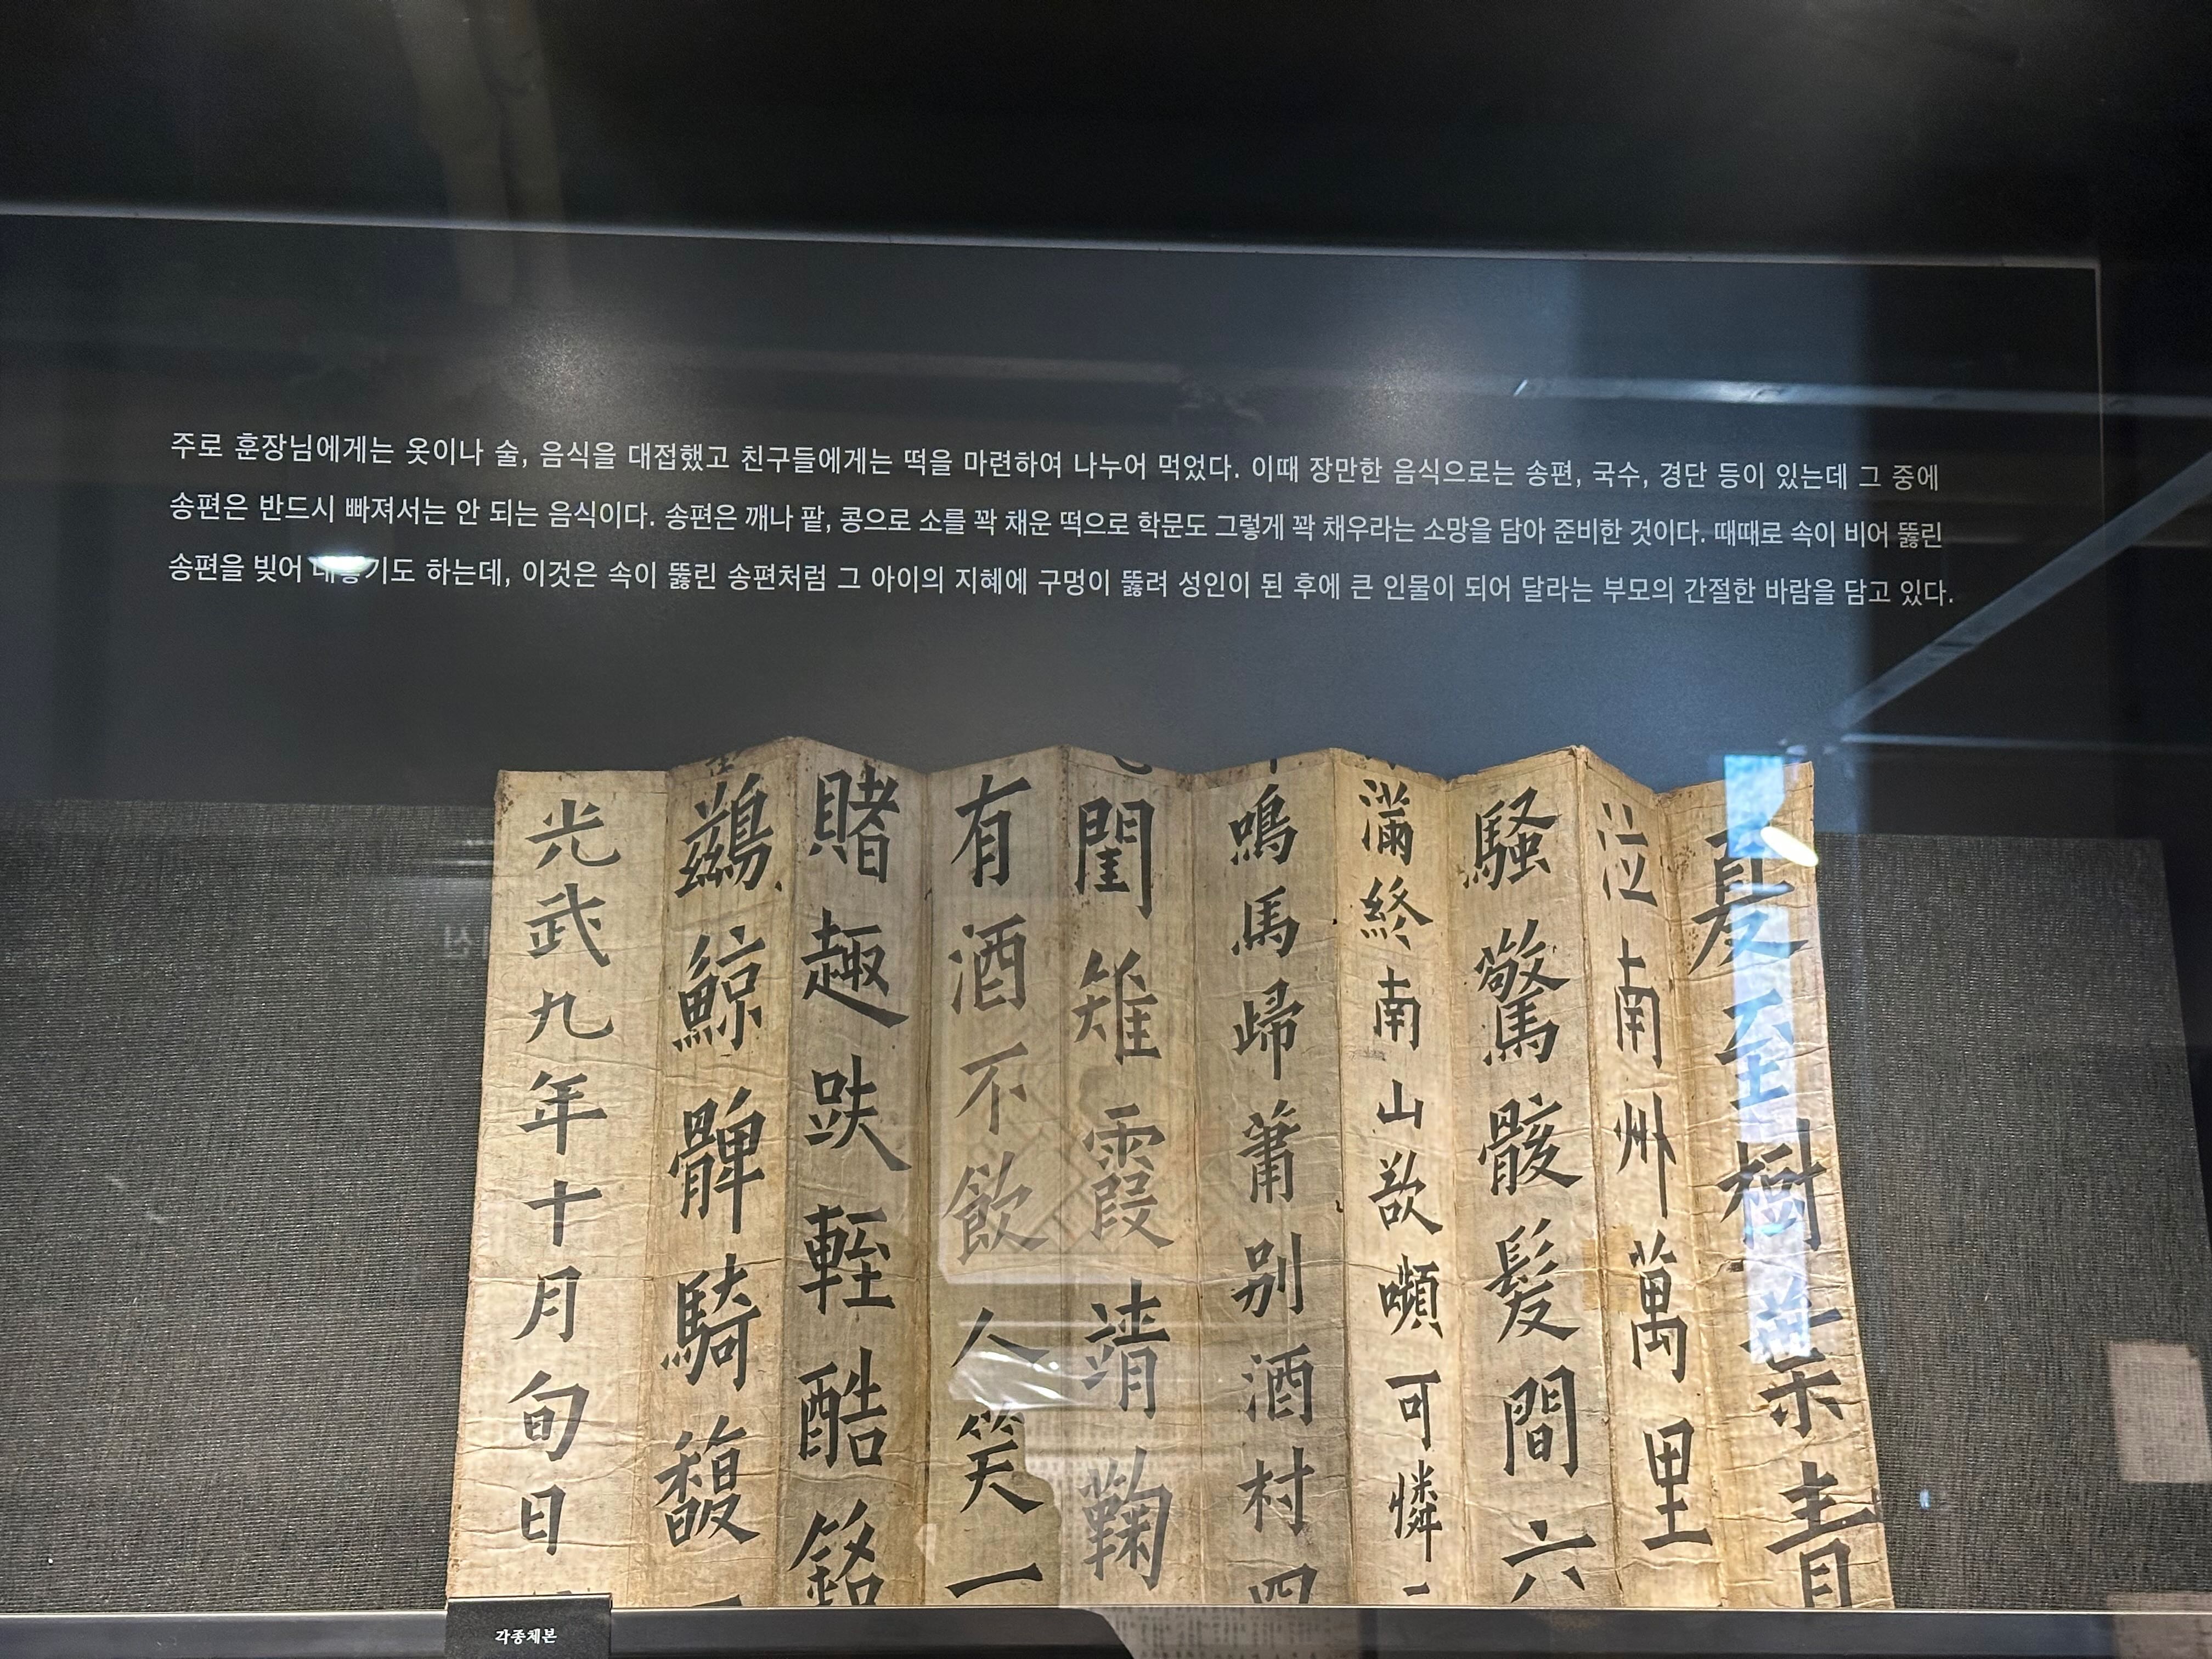 주로 훈장님에게는 옷이나 술, 음식을 대접했고 친구들에게는 떡을 마련하여 나누어 먹었다. 이때 장만한 음식으로는 송편, 국수, 경단 등이 있는데 그 중에
송편은 반드시 빠져서는 안 되는 음식이다. 송편은 깨나 팥, 콩으로 소를 꽉 채운 떡으로 학문도 그렇게 꽉 채우라는 소망을 담아 준비한 것이다. 때때로 속이 비어 뚫린
송편을 빚어 기도 하는데, 이것은 속이 뚫린 송편처럼 그 아이의 지혜에 구멍이 뚫려 성인이 된 후에 큰 인물이 되어 달라는 부모의 간절한 바람을 담고 있다.
夏至樹葉青
泣南州萬里
騷驚骸髮間六
滿終南山欲嚬可憐
鳴馬歸蕭别酒村四
閨雉霞靖鞠
有酒不飮人笑一
賭趣趺輊酷銘
鷀鯨髀騎馥
光武九年十月旬日
각종체본